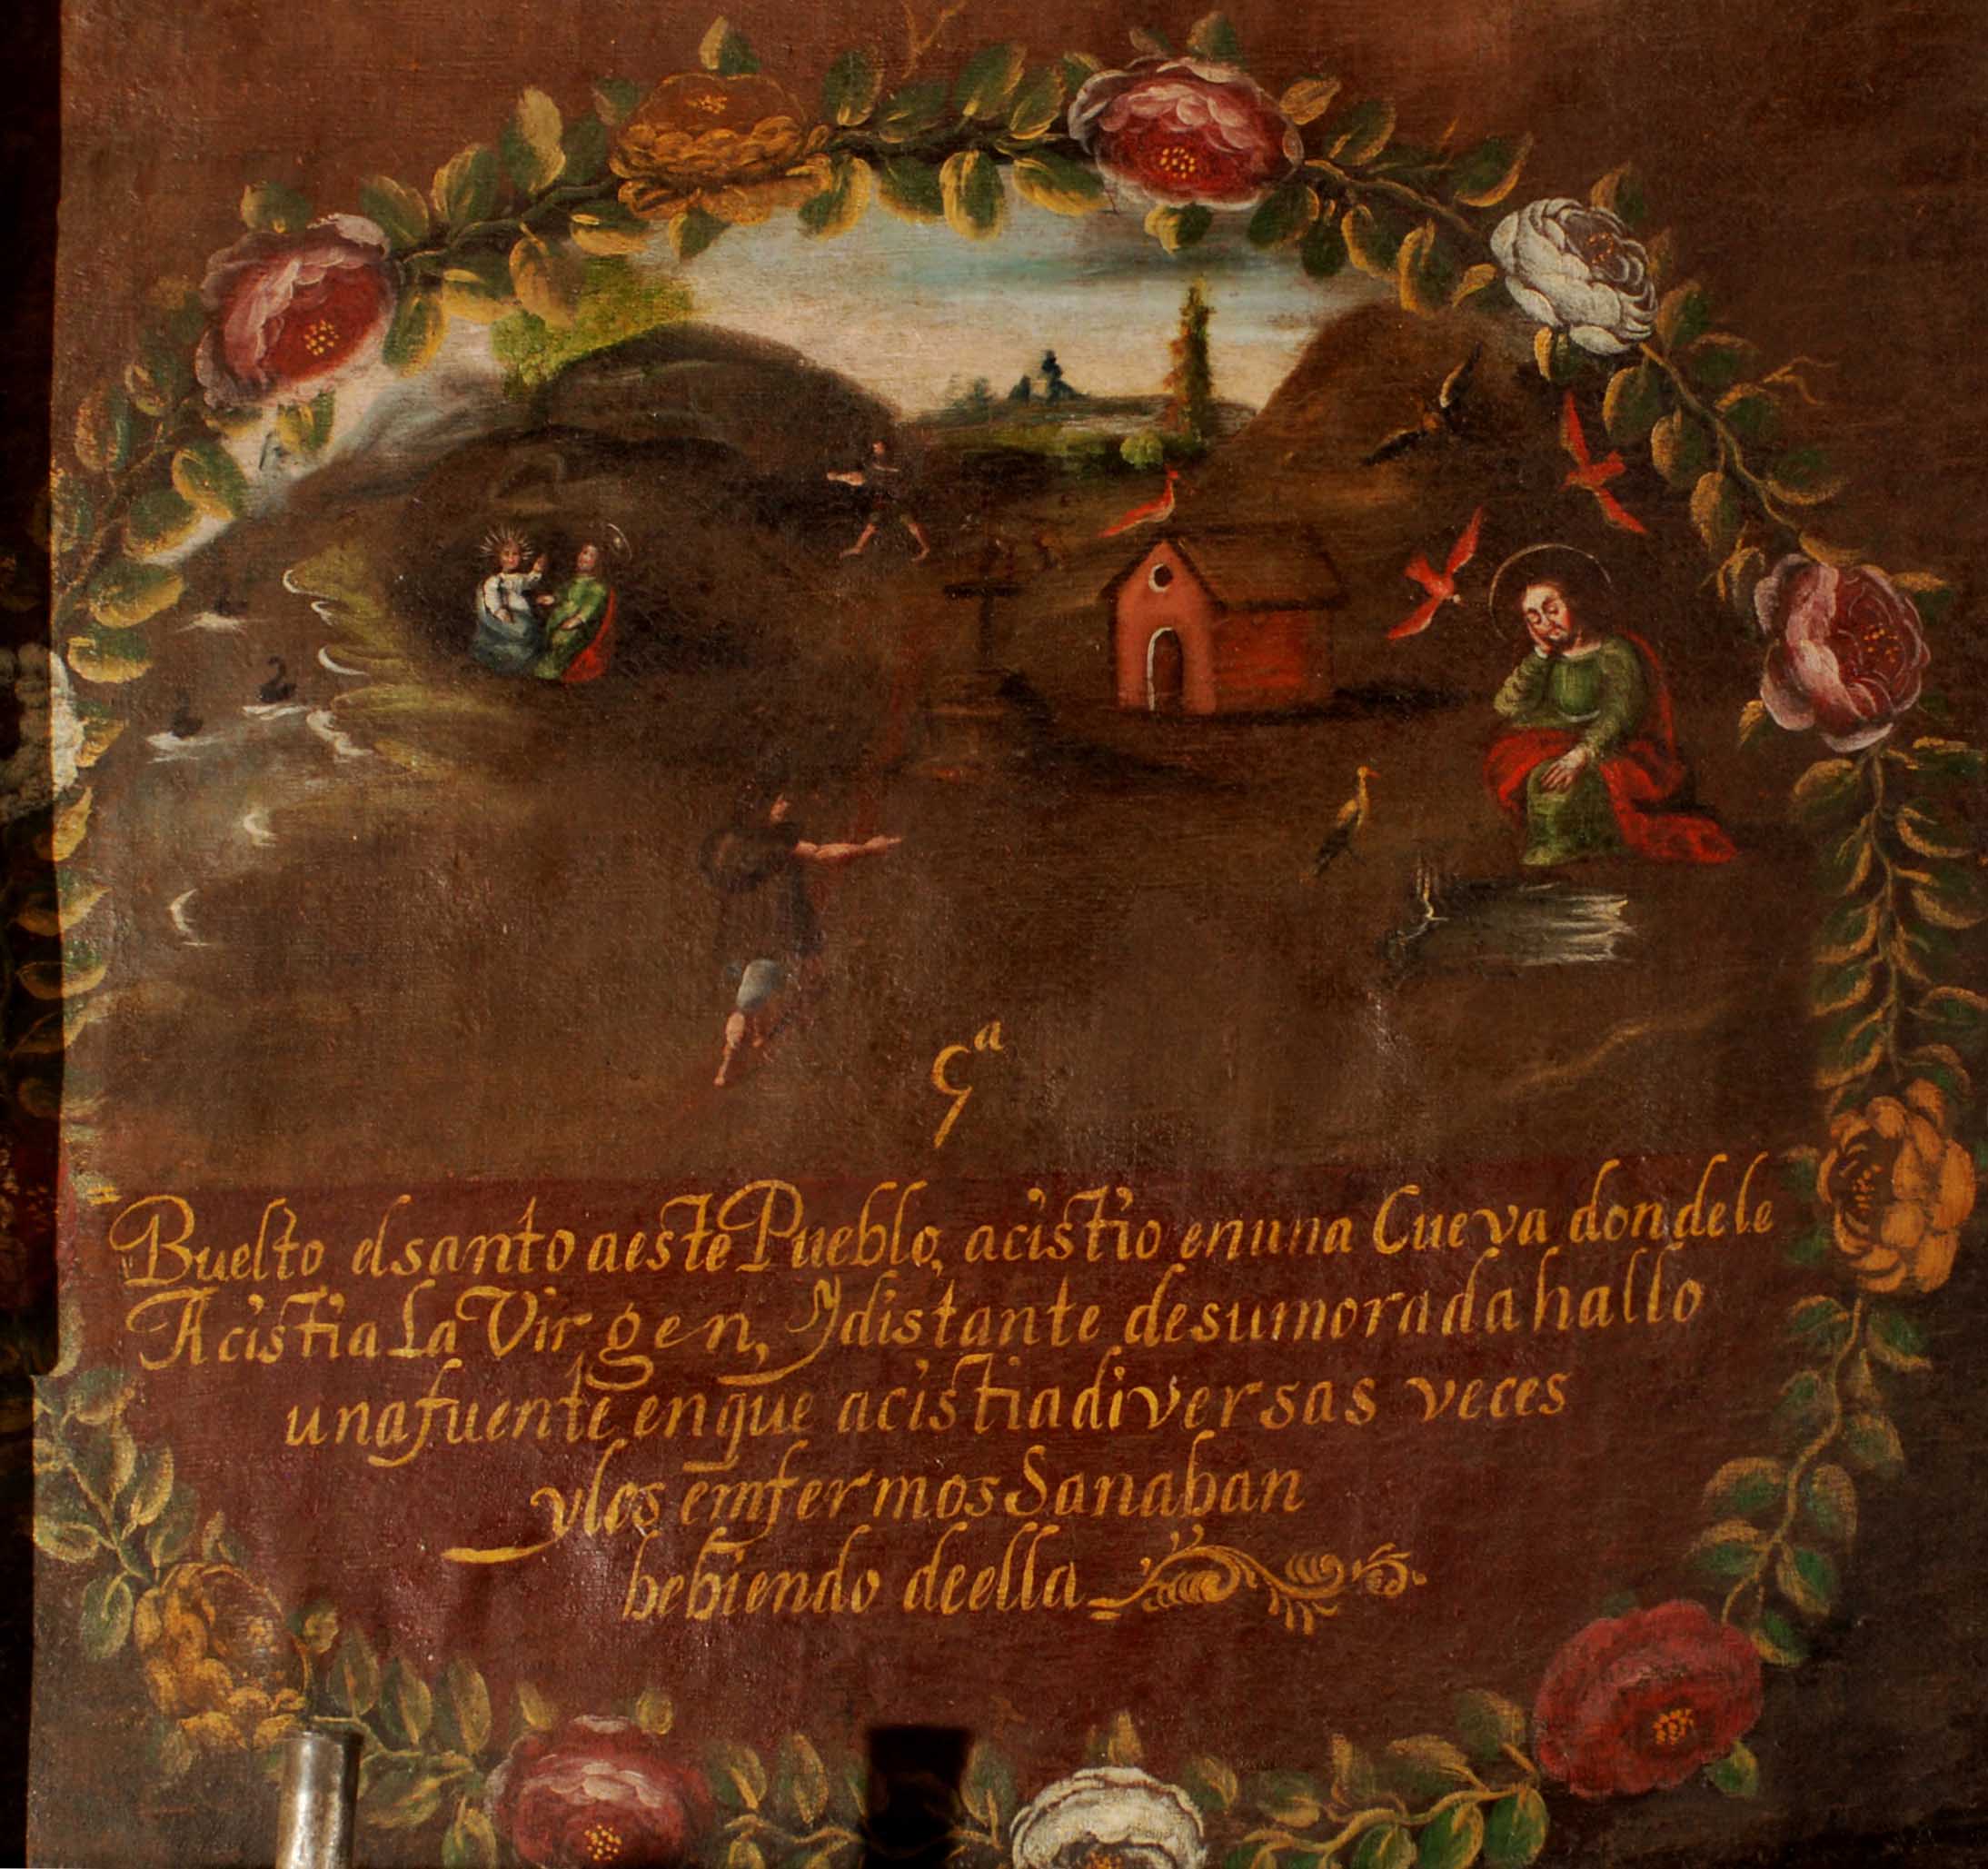 9ª
Buelto el santo a este Pueblo, acistio en una Cueva donde le
Acistia La Virgen, Y distante de su morada hallo
una fuente en que acistia diversas veces
y los emfermos Sanaban
bebiendo de ella